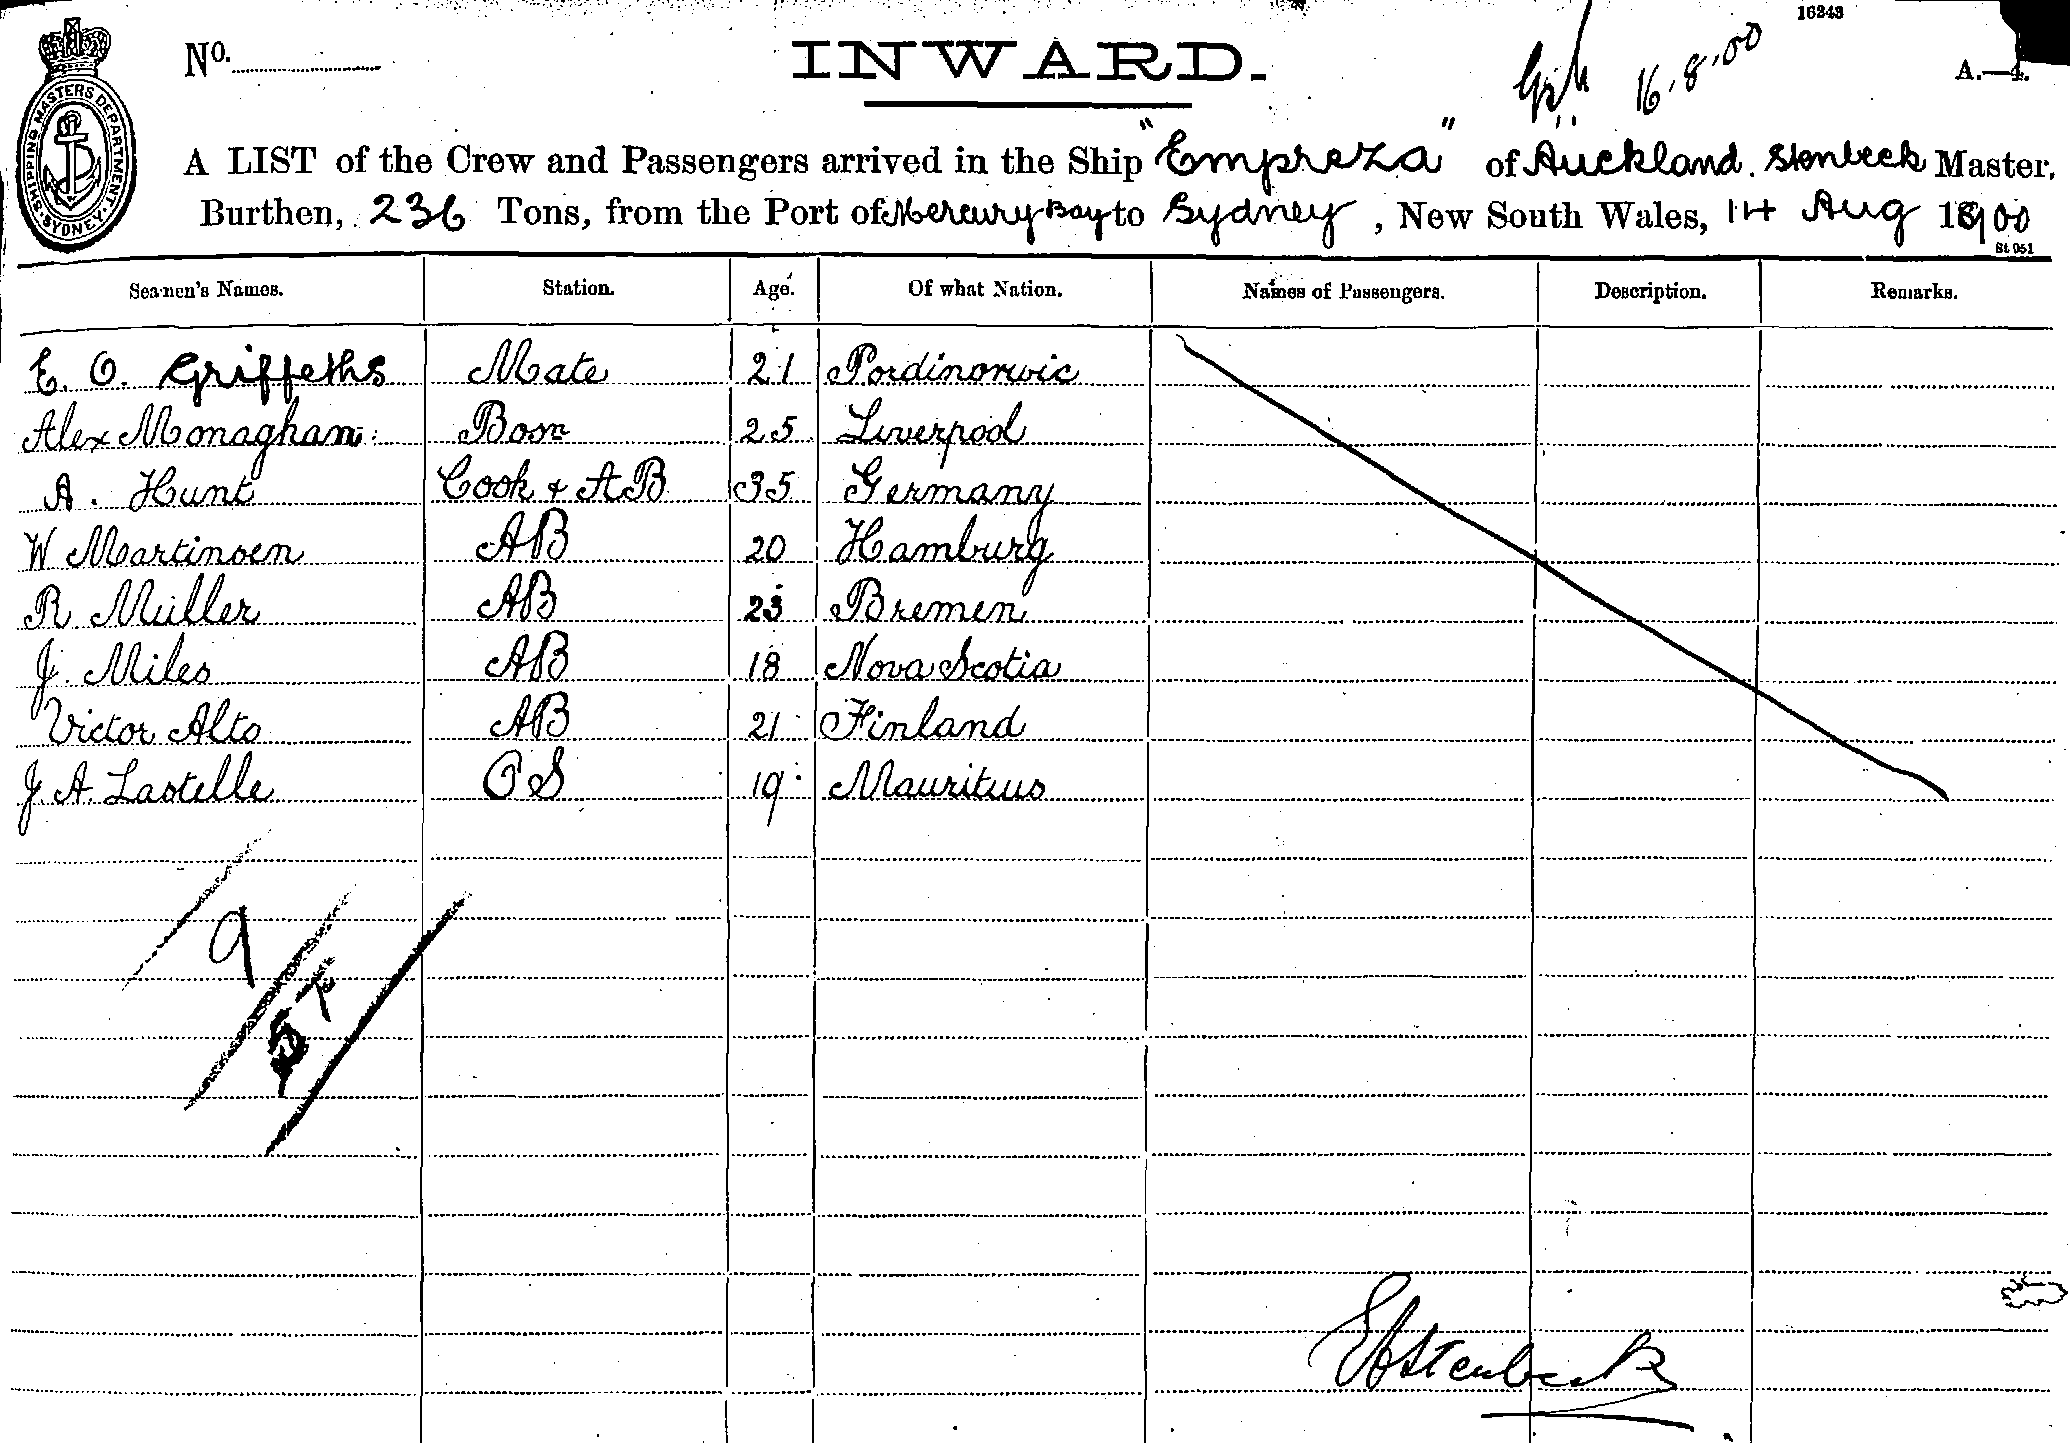 16243
No.
INWARD.
16.8.00
A.—4.
SHIPPING MASTERS DEPARTMENT. SYDNEY.
A LIST of the Crew and Passengers arrived in the Ship "Empreza" of Auckland. Stenbeck Master,
Burthen, 236 Tons, from the Port of Mercury Bay to Sydney, New South Wales, 14 Aug 1900
St 951
Seamen's Names. Station. Age. Of what Nation. Names of Passengers. Description. Remarks.
E. O. Griffeths Mate 21 Pordinorwic
Alex Monaghan Bosn 25 Liverpool
A. Hunt Cook + AB 35 Germany
W Martinsen AB 20 Hamburg
R. Müller AB 23 Bremen
J. Miles AB 18 Nova Scotia
Victor Alto AB 21 Finland
J. A. Lastelle OS 19 Mauritius
9
Stenbeck